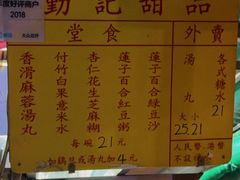 年度好评商户
2018
大众点评
勤記甜品
堂食
外賣
蓮子百合綠豆沙
蓮子百合紅豆粥
杏仁花生芝麻糊
付竹白果意米水
香滑麻蓉湯丸
每碗21元
如鷄旦或湯丸加4元
各式糖水
21
湯丸
大 小
25.21
人民幣、港幣
不設